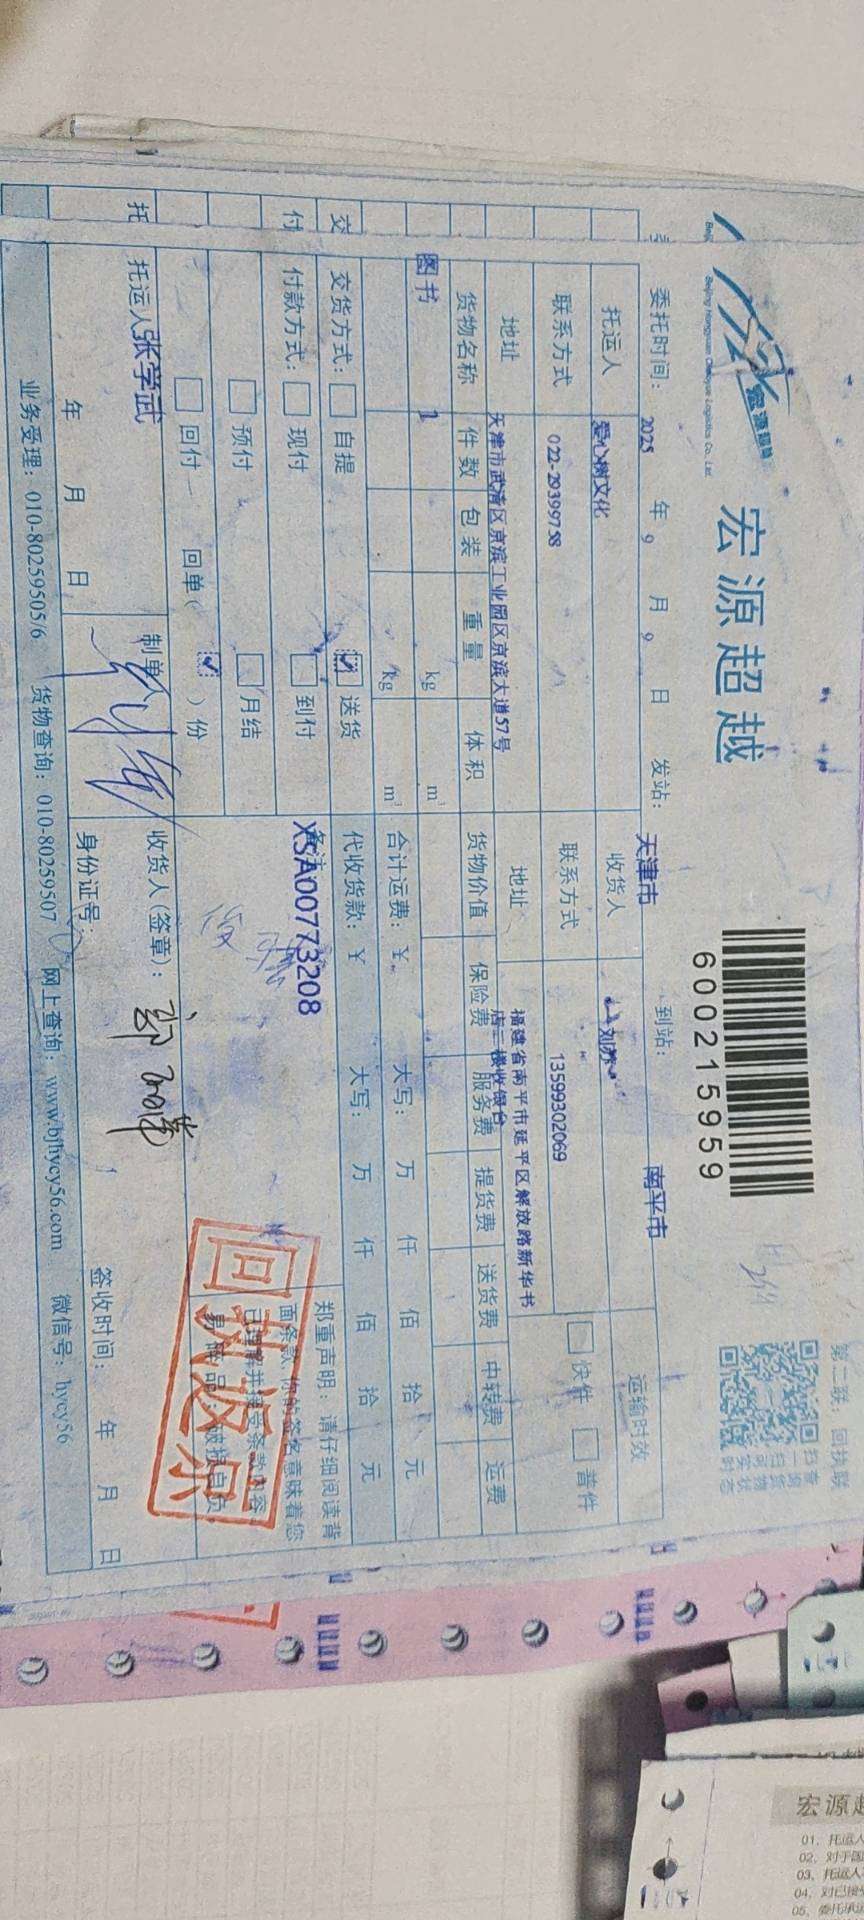 宏源超越
Beijing Hongyuan Chaoyue Logistics Co., Ltd.
宏源超越
600215959
第二联：回执联
委托时间： 2025 年 9 月 9 日 发站： 天津市 到站： 南平市
托运人 爱心树文化 收货人 运输时效
联系方式 022-29399758 联系方式 13599302069 快件 普件
地址 天津市武清区京滨工业园区京滨大道57号 地址 福建省南平市延平区解放路新华书
店二楼收银台
货物名称 件数 包装 重量 体积 货物价值 保险费 服务费 提货费 送货费 中转费 运费
图书 1 kg m³
kg m³ 合计运费：￥ 大写： 万 仟 佰 拾 元
交货方式： 自提 送货 代收货款：￥ 大写： 万 仟 佰 拾 元
付款方式： 现付 到付 备注
预付 月结 XSA00773208
回付 回单（ ）份
郑重声明：请仔细阅读背
面条款,你的签名意味着您
已理解并接受条款内容
回执返示
托运人 张学武 制单人 收货人(签章)：
年 月 日 身份证号： 签收时间： 年 月 日
业务受理：010-80259505/6 货物查询：010-80259507 网上查询：www.bjhycy56.com 微信号：hycy56
托
付
交
宏源超
01、托运人
02、对于国
03、托运人
04、对已接
05、委托承运